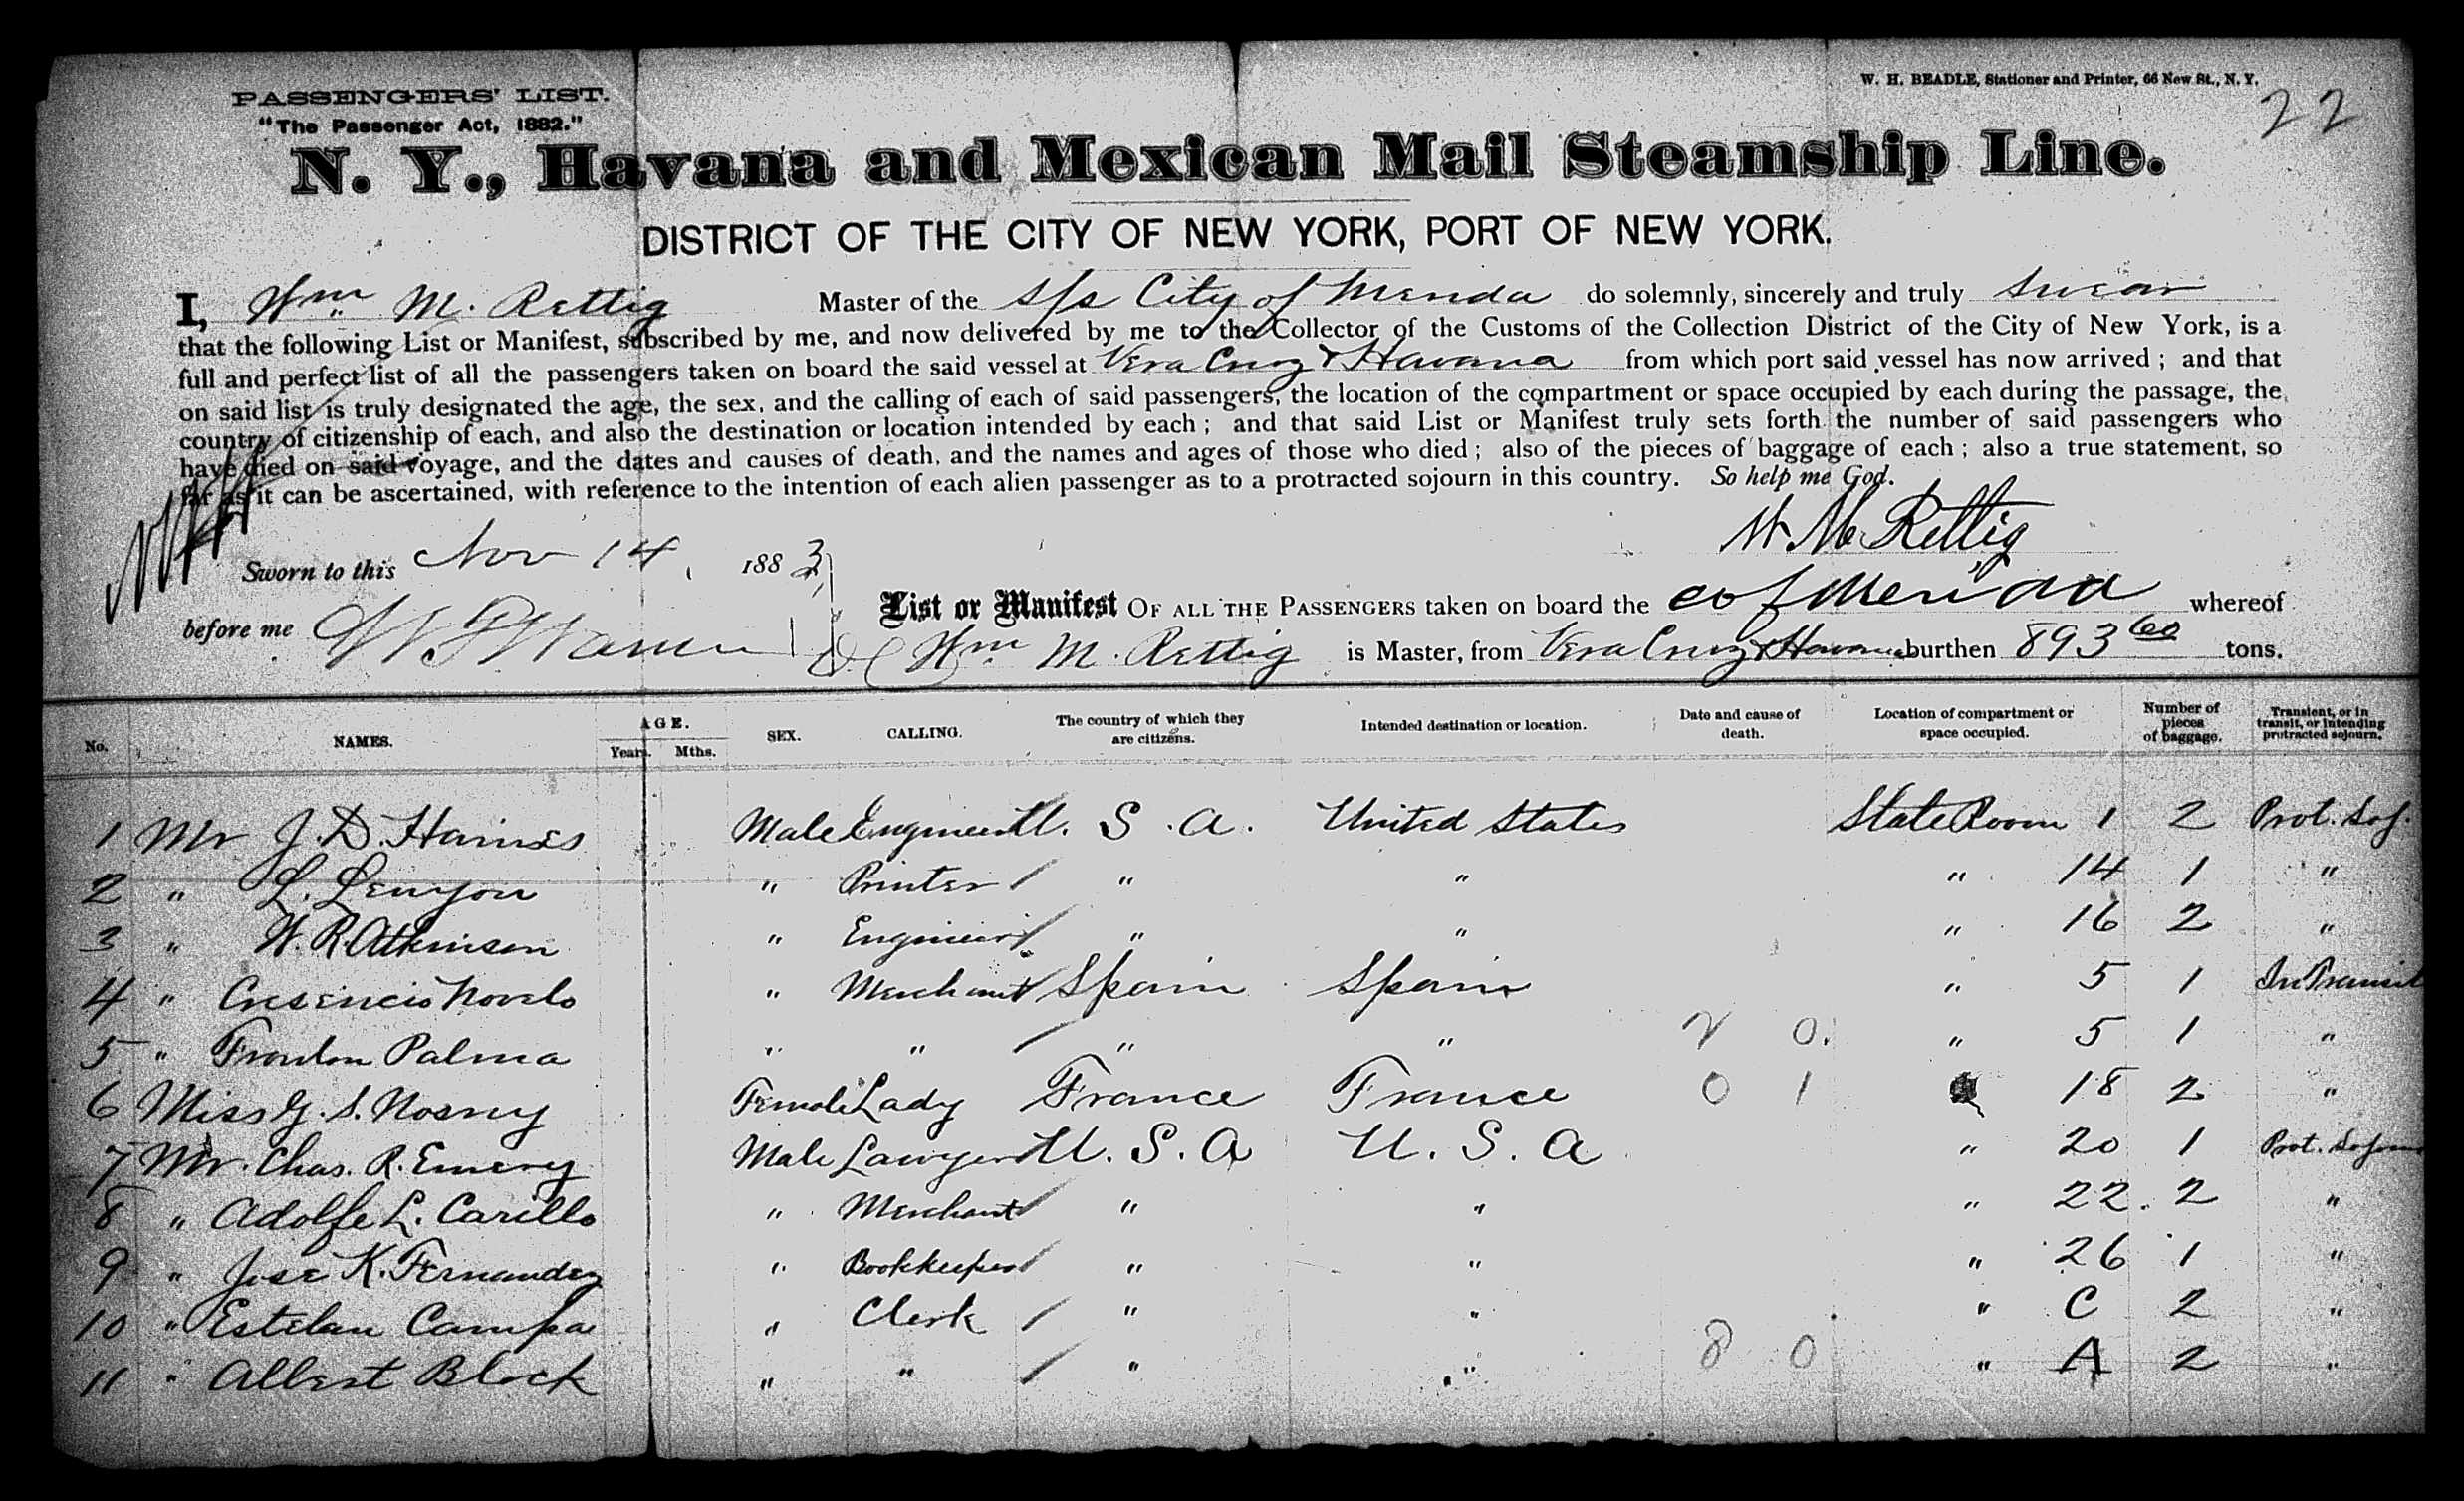 W. H. BEADLE, Stationer and Printer, 66 New St., N. Y.
22
PASSENGERS' LIST.
"The Passenger Act, 1882."
N. Y., Havana and Mexican Mail Steamship Line.
DISTRICT OF THE CITY OF NEW YORK, PORT OF NEW YORK.
I, Wm. M. Rettig Master of the S/s City of Merida do solemnly, sincerely and truly Swear
that the following List or Manifest, subscribed by me, and now delivered by me to the Collector of the Customs of the Collection District of the City of New York, is a
full and perfect list of all the passengers taken on board the said vessel at Vera Cruz & Havana from which port said vessel has now arrived ; and that
on said list is truly designated the age, the sex, and the calling of each of said passengers, the location of the compartment or space occupied by each during the passage, the
country of citizenship of each, and also the destination or location intended by each ; and that said List or Manifest truly sets forth the number of said passengers who
have died on said voyage, and the dates and causes of death, and the names and ages of those who died ; also of the pieces of baggage of each ; also a true statement, so
far as it can be ascertained, with reference to the intention of each alien passenger as to a protracted sojourn in this country. So help me God.
W M Rettig
Sworn to this Nov 14, 1883
List or Manifest OF ALL THE PASSENGERS taken on board the C of Merida whereof
before me
Wm M. Rettig is Master, from Vera Cruz & Havana burthen 893 60 tons.
No. NAMES. AGE. Years. Mths. SEX. CALLING. The country of which they are citizens. Intended destination or location. Date and cause of death. Location of compartment or space occupied. Number of pieces of baggage. Transient, or in transit, or intending protracted sojourn.
1 Mr J. D. Haines Male Engineer U. S. A. United States State Room 1 2 Prot. Soj.
2 " L. Lenyon " Printer " " " 14 1 "
3 " W. R. Atkinson " Engineer " " " 16 2 "
4 " Cresencio Novelo " Merchant Spain Spain " 5 1 In Transit
5 " Palma " " " " 2 0. " 5 1 "
6 Miss G. S. Female Lady France France 0 1 18 2 "
7 Mr. Chas. R. Emery Male Lawyer U. S. A U. S. A " 20 1 Prot. Sojourn
8 " Adolfe L. Carillo " Merchant " " " 22. 2 "
9 " Jose K. Fernandez " Bookkeeper " " " 26 1 "
10 " Esteban Campa " Clerk " " " C 2 "
11 " Albert Block " " " " 8 0 " A 2 "